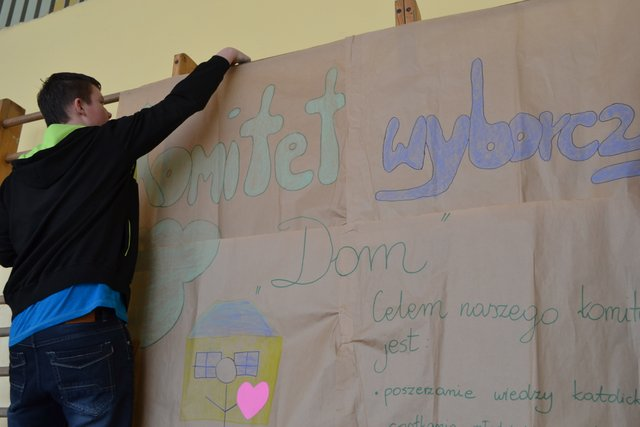 Komitet wyborcz
„Dom"
Celem naszego komit
jest:
• poszerzanie wiedzy katolick